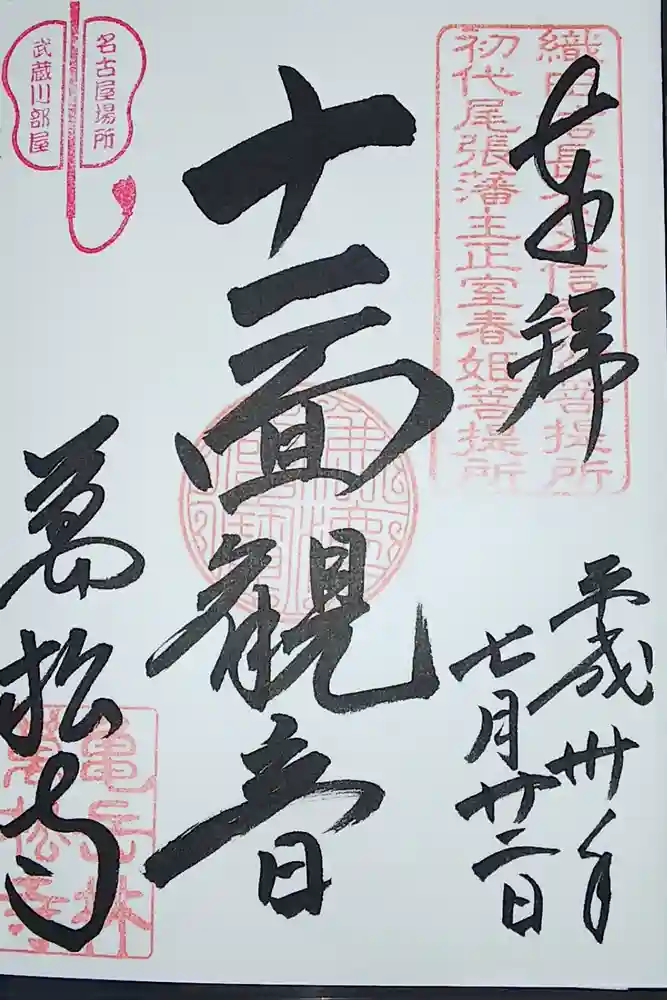 奉拝
織田信長公父信秀公菩提所
初代尾張藩主正室春姫菩提所
平成卅年
七月廿二日
十一面観音
名古屋場所
武蔵川部屋
萬松寺
亀岳林
萬松寺